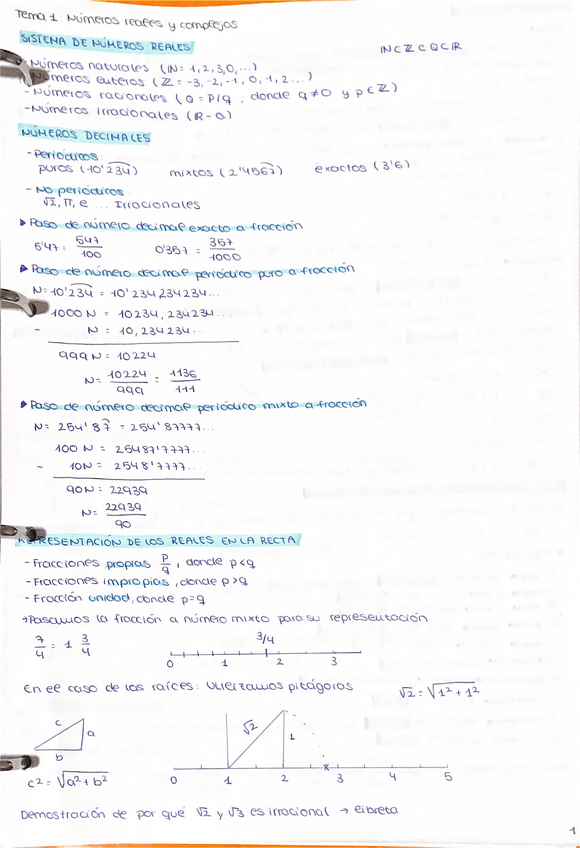 Tema 1: Números reales y complejos
SISTEMA DE NÚMEROS REALES
ℕ⊂ℤ⊂ℚ⊂ℝ
Números naturales (ℕ = 1,2,3,0,...)
Números enteros (ℤ = -3,-2,-1,0,1,2...)
- Números racionales (Q = P/q, donde q≠0 y p∈ℤ)
- Números irracionales (ℝ-Q)
NÚMEROS DECIMALES
- Periódicos:
puros (10'234) mixtos (2'4567) exactos (3'6)
- No periódicos:
√2, π, e ... Irracionales
▶ Paso de número decimal exacto a fracción
5'47 = 547/100 0'357 = 357/1000
▶ Paso de número decimal periódico puro a fracción
N = 10'234 = 10'234234234...
1000 N = 10234,234234...
- N = 10,234234...
999 N = 10224
N = 10224/999 = 1136/111
▶ Paso de número decimal periódico mixto a fracción
N = 254'87 = 254'87777...
100 N = 25487'7777...
- 10N = 2548'7777...
90N = 22939
N = 22939/90
REPRESENTACIÓN DE LOS REALES EN LA RECTA
- Fracciones propias p/q, donde p<q
- Fracciones impropias, donde p>q
- Fracción unidad, donde p=q
→ Pasamos la fracción a número mixto para su representación
7/4 = 1 3/4
3/4
0 1 2 3
En el caso de las raíces: Utilizamos pitágoras
√2 = √1²+1²
c a b
c² = √a²+b²
√2 1
0 1 2 x 3 4 5
Demostración de por qué √2 y √3 es irracional → libreta
1